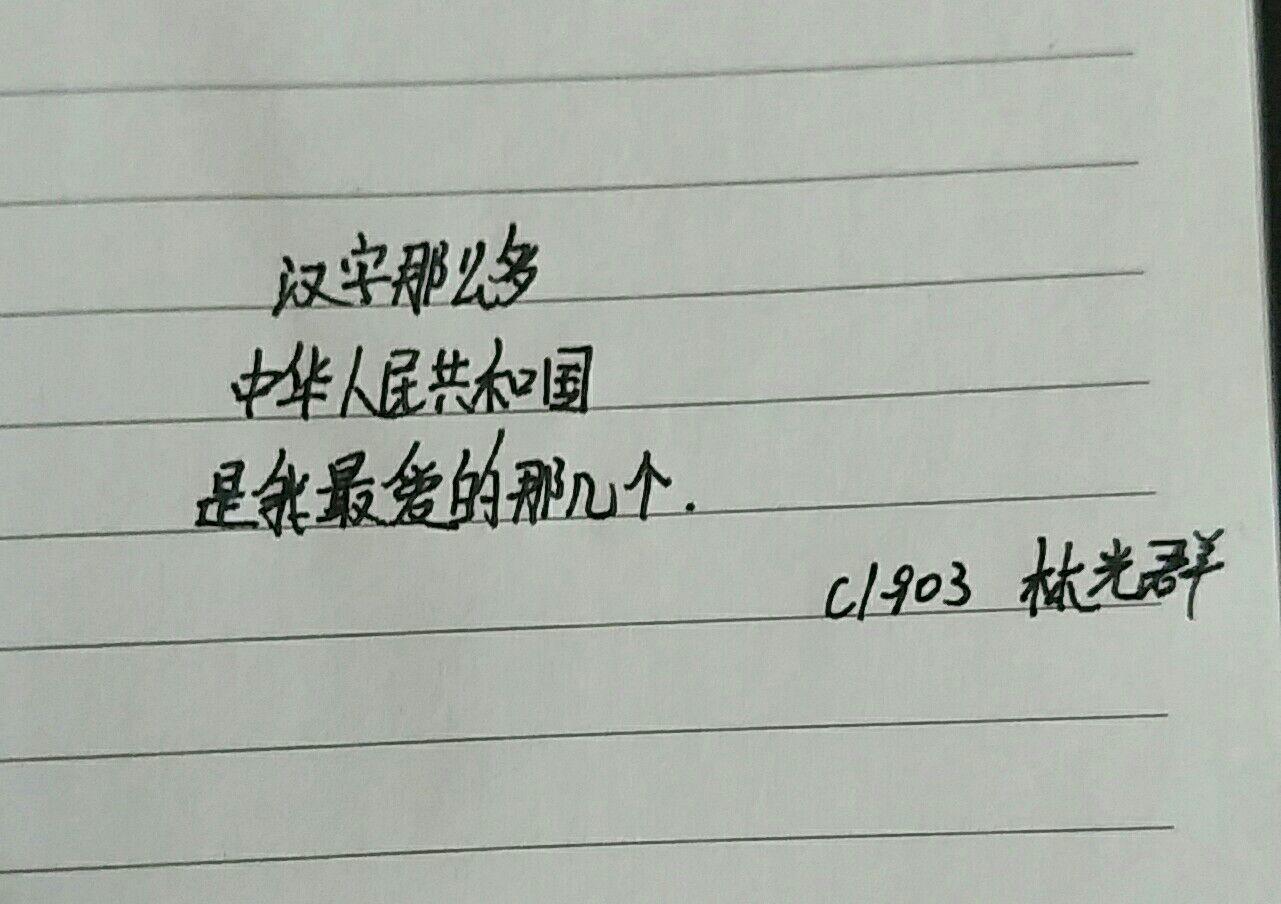 汉字那么多
中华人民共和国
是我最爱的那几个.
C1903 林光群